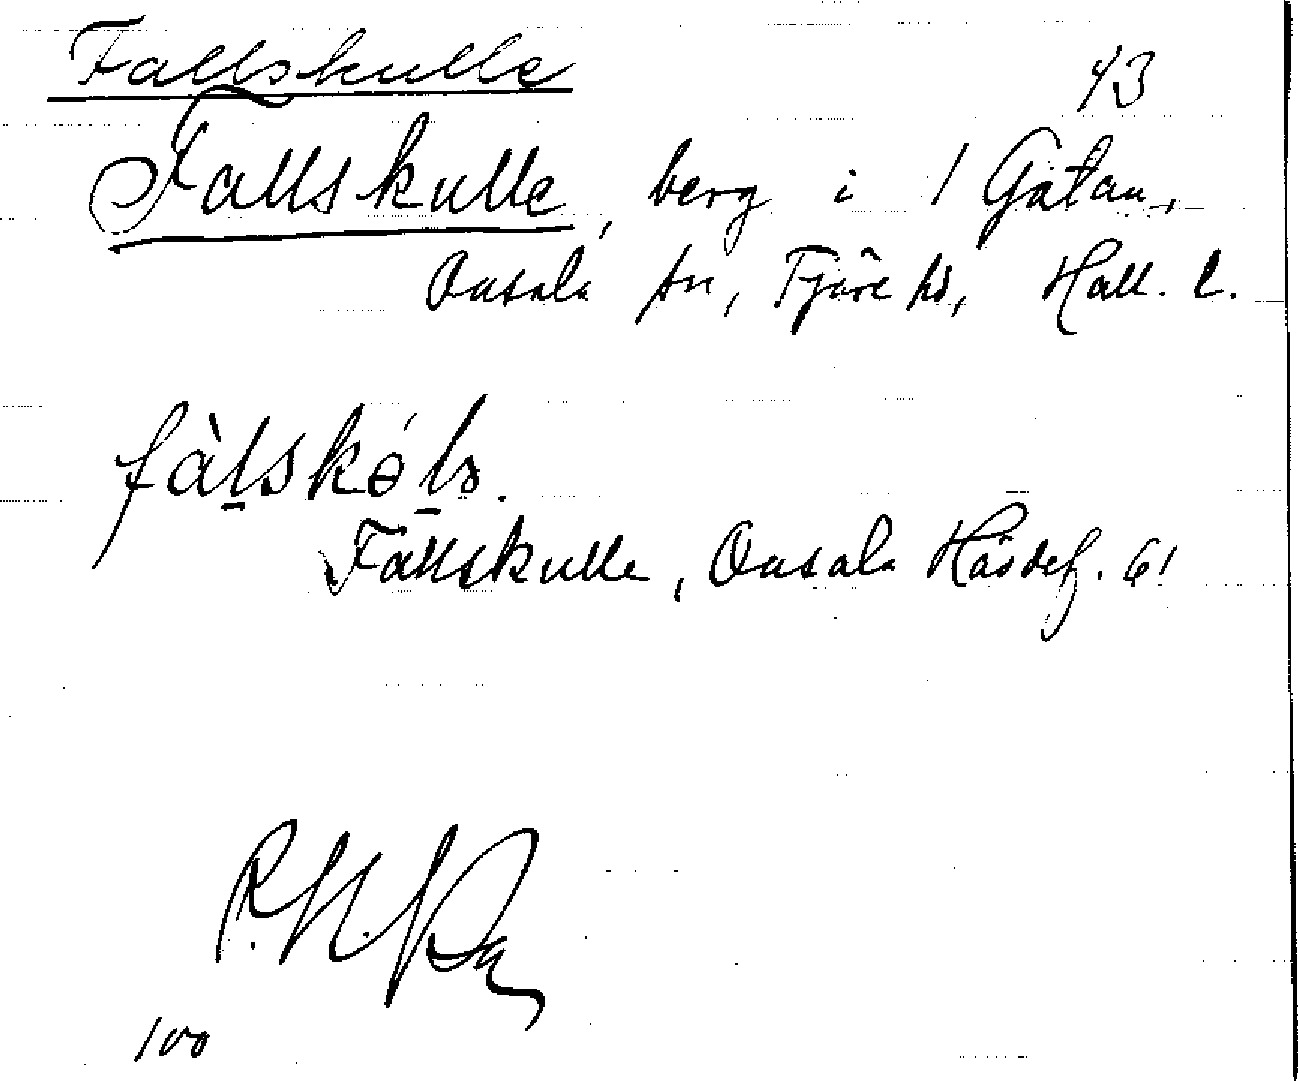 Fallskulle
43
Fallskulle, berg i 1 Gatan,
Onsala sn, Fjäre hd, Hall. l.
fàlskó
Fallskulle, Onsala Häsdef. 61
100